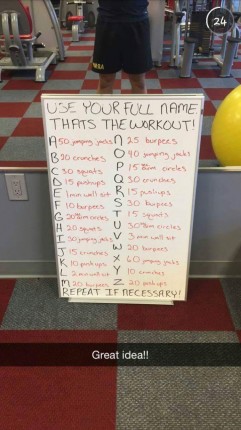 24
USE YOUR FULL NAME.
THATS THE WORKOUT!
A 50 jumping jacks
B 20 crunches
C 30 squats
D 15 pushups
E 1 min wall sit
F 10 burpees
G 20 arm circles
H 20 squats
I 30 jumping jacks
J 15 crunches
K 10 pushups
L 2 min wall sit
M 20 burpees
N 25 burpees
O 40 jumping jacks
P 15 arm circles
Q 30 crunches
R 15 pushups
S 30 burpees
T 15 squats
U 30 arm circles
V 3 min wall sit
W 20 burpees
X 60 jumping jacks
Y 10 crunches
Z 20 pushups
REPEAT IF NECESSARY!
Great idea!!